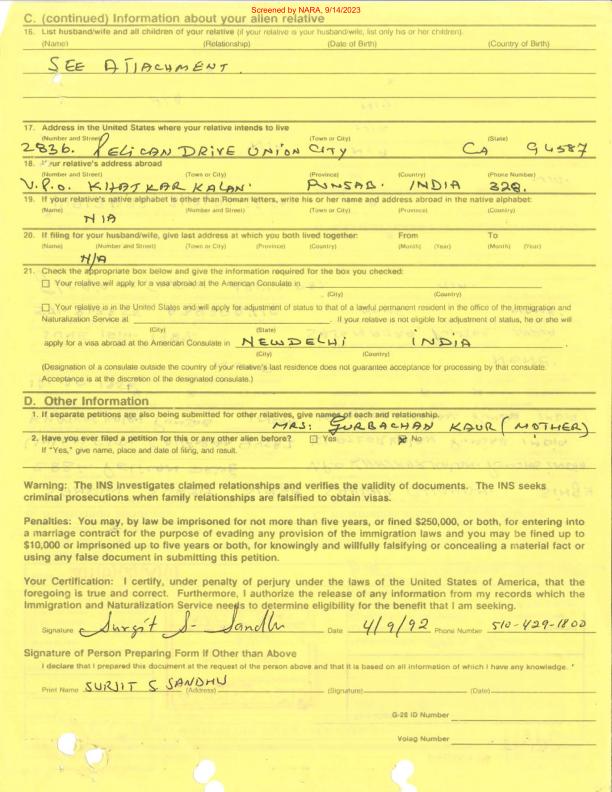 Screened by NARA, 9/14/2023
C. (continued) Information about your alien relative
16. List husband/wife and all children of your relative (if your relative is your husband/wife, list only his or her children).
(Name) (Relationship) (Date of Birth) (Country of Birth)
SEE ATTACHMENT.
17. Address in the United States where your relative intends to live
(Number and Street) (Town or City) (State)
2836. PELICAN DRIVE UNION CITY CA 94587
18. Your relative's address abroad
(Number and Street) (Town or City) (Province) (Country) (Phone Number)
V.P.O. KHATKAR KALAN PUNJAB. INDIA 328.
19. If your relative's native alphabet is other than Roman letters, write his or her name and address abroad in the native alphabet:
(Name) (Number and Street) (Town or City) (Province) (Country)
N/A
20. If filing for your husband/wife, give last address at which you both lived together: From To
(Name) (Number and Street) (Town or City) (Province) (Country) (Month) (Year) (Month) (Year)
N/A
21. Check the appropriate box below and give the information required for the box you checked:
☐ Your relative will apply for a visa abroad at the American Consulate in
(City) (Country)
☐ Your relative is in the United States and will apply for adjustment of status to that of a lawful permanent resident in the office of the Immigration and
Naturalization Service at . If your relative is not eligible for adjustment of status, he or she will
(City) (State)
apply for a visa abroad at the American Consulate in NEWDELHI INDIA .
(City) (Country)
(Designation of a consulate outside the country of your relative's last residence does not guarantee acceptance for processing by that consulate.
Acceptance is at the discretion of the designated consulate.)
D. Other Information
1. If separate petitions are also being submitted for other relatives, give names of each and relationship.
MRS: GURBACHAN KAUR (MOTHER)
2. Have you ever filed a petition for this or any other alien before? ☐ Yes ☒ No
If "Yes," give name, place and date of filing, and result.
Warning: The INS investigates claimed relationships and verifies the validity of documents. The INS seeks
criminal prosecutions when family relationships are falsified to obtain visas.
Penalties: You may, by law be imprisoned for not more than five years, or fined $250,000, or both, for entering into
a marriage contract for the purpose of evading any provision of the immigration laws and you may be fined up to
$10,000 or imprisoned up to five years or both, for knowingly and willfully falsifying or concealing a material fact or
using any false document in submitting this petition.
Your Certification: I certify, under penalty of perjury under the laws of the United States of America, that the
foregoing is true and correct. Furthermore, I authorize the release of any information from my records which the
Immigration and Naturalization Service needs to determine eligibility for the benefit that I am seeking.
Signature Surjit S- Sandhu Date 4/9/92 Phone Number 510-429-1800
Signature of Person Preparing Form If Other than Above
I declare that I prepared this document at the request of the person above and that it is based on all information of which I have any knowledge.
Print Name SURJIT S SANDHU (Address) (Signature) (Date)
G-28 ID Number
Volag Number